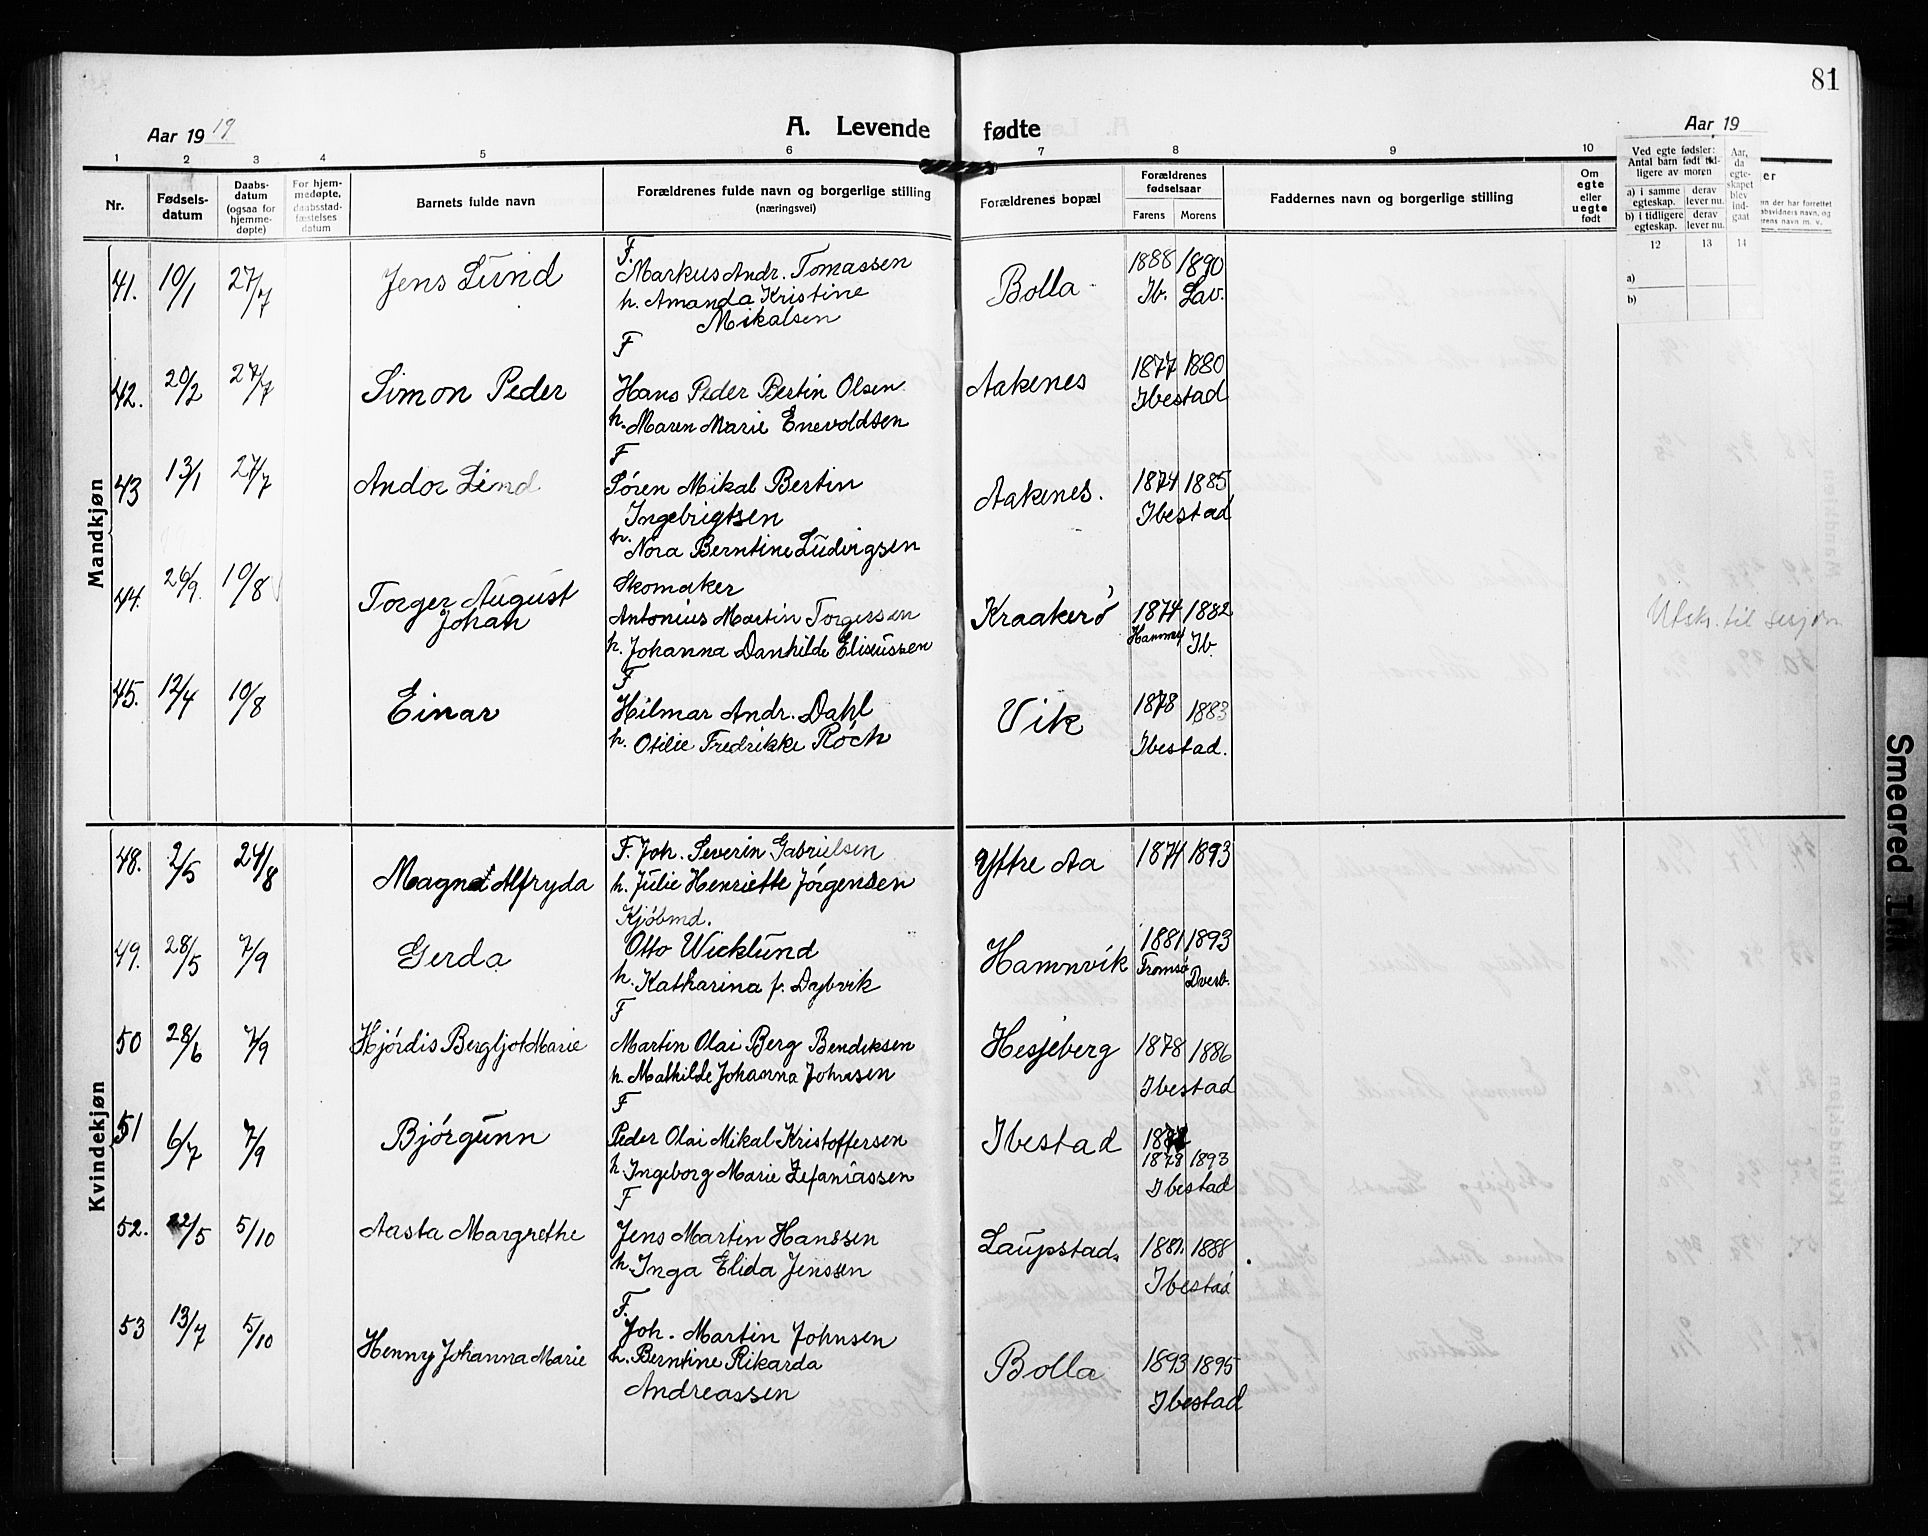 81
Aar 1919
A. Levende fødte
Aar 19
1 2 3 4 5 6 7 8 9 10
Nr.
Fødsels-
datum
Daabs-
datum
(ogsaa for
hjemme-
døpte)
For hjem-
medøpte,
daabsstad-
fæstelses
datum
Barnets fulde navn
Forældrenes fulde navn og borgerlige stilling
(næringsvei)
Forældrenes bopæl
Forældrenes
fødselsaar
Farens Morens
Faddernes navn og borgerlige stilling
Om
egte
eller
uegte
født
Ved egte fødsler:
Antal barn født tid-
ligere av moren
a) i samme
egteskap.
derav
lever nu.
b) i tidligere
egteskap.
derav
lever nu.
Aar,
da
egte-
skapet
blev
ind-
gaat
12 13 14
a)
b)
Mandkjøn
41. 10/1 27/7 Jens Lund
F.
Markus Andr. Tomassen
h. Amanda Kristine
Mikalsen
Bolla 1888 1890
Ib. Lav.
42. 20/2 27/7 Simon Peder
F
Hans Peder Bertin Olsen
h. Maren Marie Enevoldsen
Aakenes 1877 1880
Ibestad
43 13/1 27/7 Andor Lind
F
Søren Mikal Bertin
Ingebrigtsen
h. Nora Berntine Ludvigsen
Aakenes. 1874 1885
Ibestad
44. 26/9. 10/8 Torger August
Johan
Skomaker
Antonius Martin Torgersen
h. Johanna Danhilde Eliseussen
Kraakerø 1874 1882
Hammerf Ib.
Utskr. til sesjon
45. 12/4 10/8 Einar
F
Hilmar Andr. Dahl
h. Otilie Fredrikke Røch
Vik 1878 1883
Ibestad.
Kvindekjøn
48. 2/5 24/8 Magna Alfryda
F. Joh. Severin Gabrielsen
h. Julie Henriette Jørgensen
Yttre Aa 1874 1893
49. 28/5 7/9 Gerda
Kjøbmd.
Otto Wicklund
h. Katharina f. Dybvik
Hamnvik 1881 1893
Tromsø Dverb.
50 28/6 7/9 Hjørdis Bergljot Marie
F
Martin Olai Berg Bendiksen
h. Mathilde Johanna Johnsen
Hesjeberg 1878 1886
Ibestad
51 6/7 7/9 Bjørgunn
F
Peder Olai Mikal Kristoffersen
h. Ingeborg Marie Zefaniassen
Ibestad
1878 1893
Ibestad
52. 22/5 5/10 Aasta Margrethe
F
Jens Martin Hanssen
h. Inga Elida Jenssen
Laupstad. 1881. 1888
Ibestad
53 13/7 5/10 Henny Johanna Marie
F.
Joh. Martin Johnsen
h. Berntine Rikarda
Andreassen
Bolla 1893 1895
Ibestad
Smeared Ink